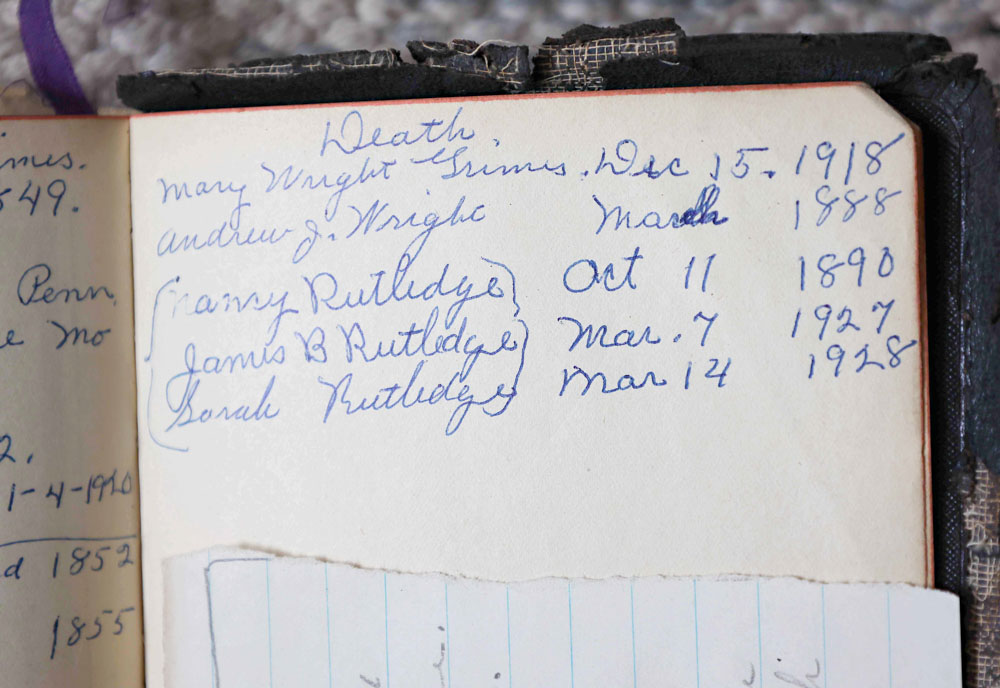 Death.
Mary Wright Grimes. Dec 15. 1918
Andrew J. Wright March 1888
Nancy Rutledge Oct 11 1890
James B Rutledge Mar. 7 1927
Sarah Rutledge Mar 14 1928
49.
Penn.
Mo
2.
1-4-1920
d 1852
1855